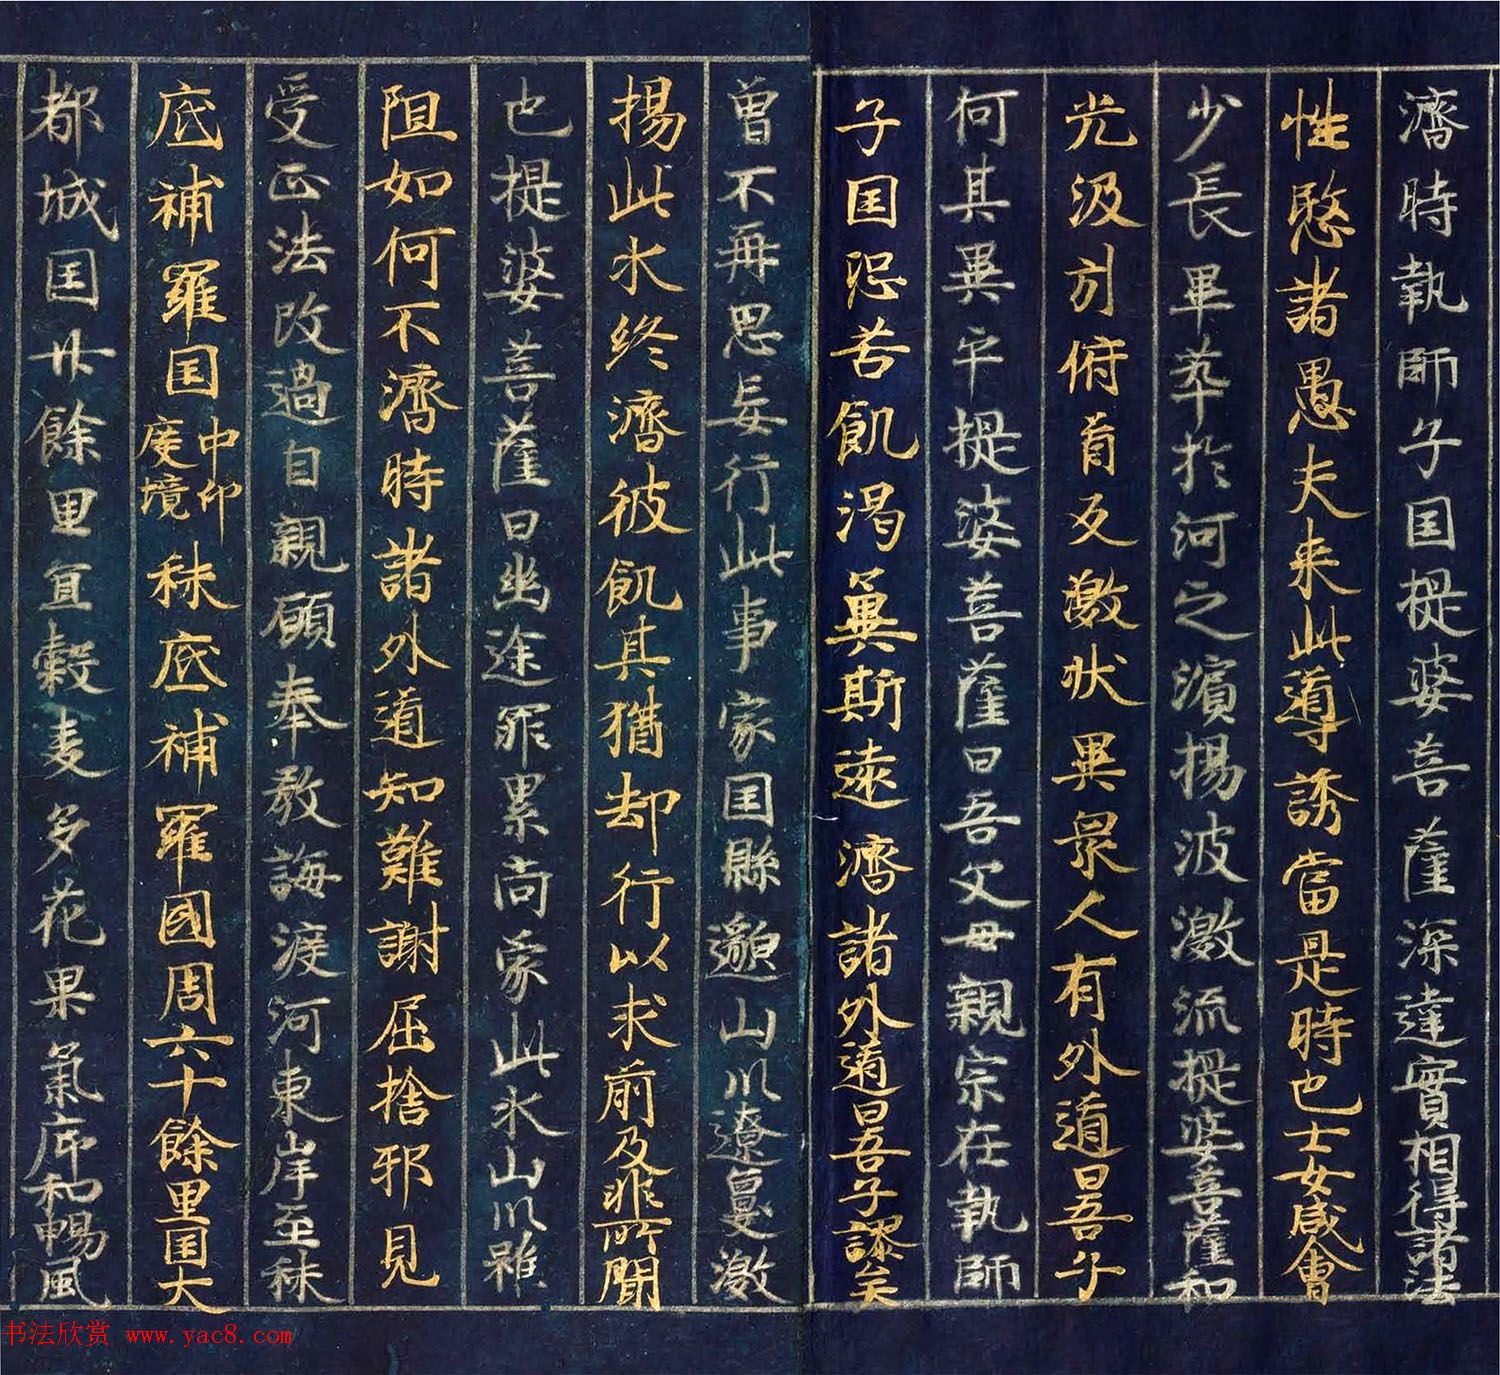 濟時執師子国提婆菩薩深達實相得諸法
性愍諸愚夫来此導誘當是時也士女咸會
少長畢萃於河之濱揚波激流提婆菩薩和
光汲引俯首反激状異衆人有外道曰吾子
何其異乎提婆菩薩曰吾父母親宗在執師
子国恐苦飢渴冀斯遠濟諸外道曰吾子謬矣
曾不再思妄行此事家国縣邈山川遼敻激
揚此水终濟彼飢其猶却行以求前及非所聞
也提婆菩薩曰幽途罪累尚蒙此水山川雖
阻如何不濟時諸外道知難謝屈捨邪見
受正法改過自親願奉教誨渡河東岸至秣
底補羅国中印度境秣底補羅國周六十餘里国大
都城国廿餘里宜穀麦多花果氣序和暢風
书法欣赏 www.yac8.com